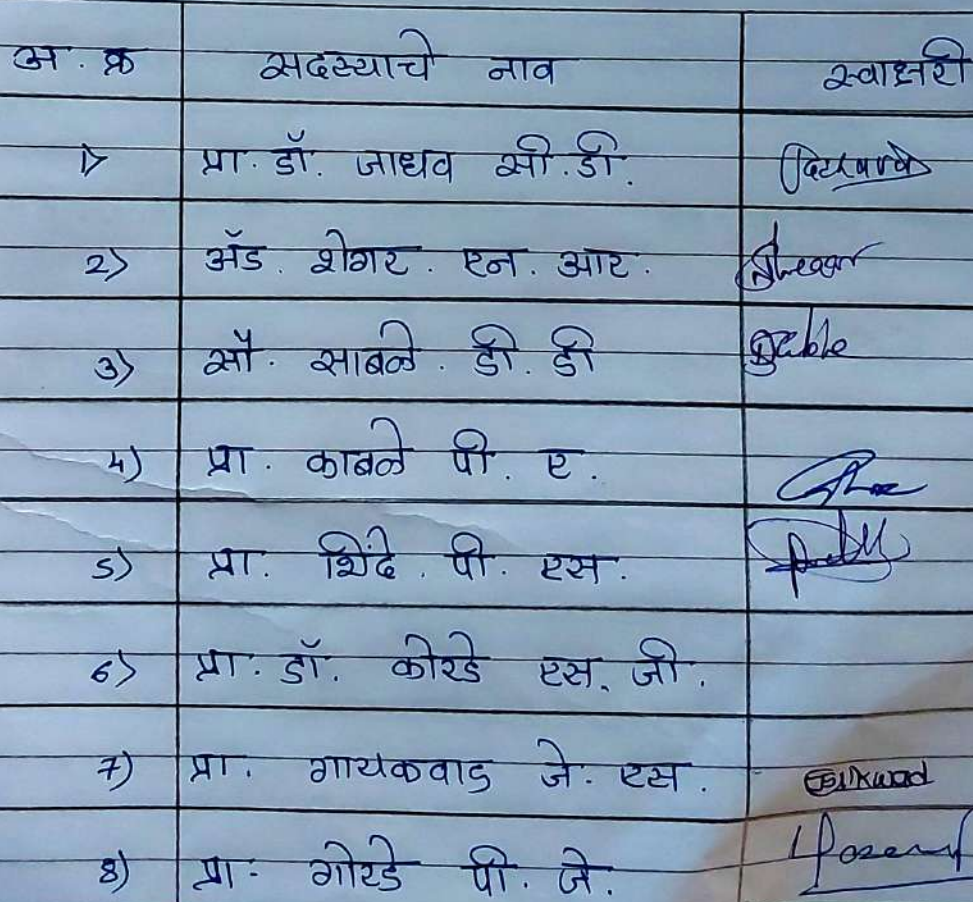 अ. क्र सदस्याचे नाव स्वाक्षरी
1> प्रा. डॉ. जाधव सी.डी.
2> अॅड. शेगर. एन. आर. Shegar
3) सौ. साबळे. डी. डी Sable
4) प्रा. काबळे पी. ए.
5) प्रा. शिंदे. पी. एस.
6> प्रा. डॉ. कोरडे एस. जी.
7) प्रा. गायकवाड जे. एस. Gaikwad
8) प्रा. गोरडे पी. जे.